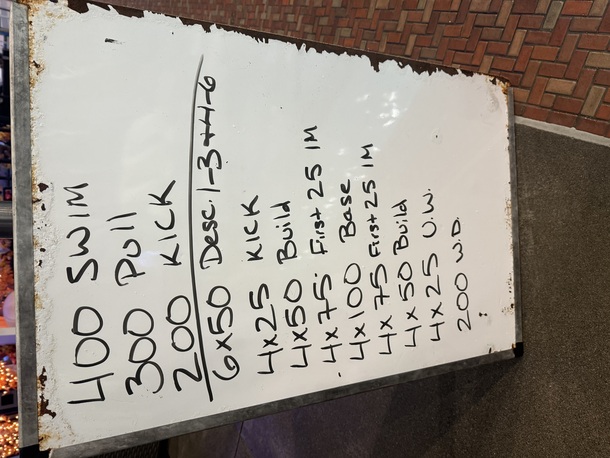 400 SWIM
300 Pull
200 KICK
6x50 Desc. 1-3 + 4-6
4x25 KICK
4x50 Build
4x75 First 25 IM
4x100 Base
4x75 First 25 IM
4x50 Build
4x25 U.W.
200 W.D.